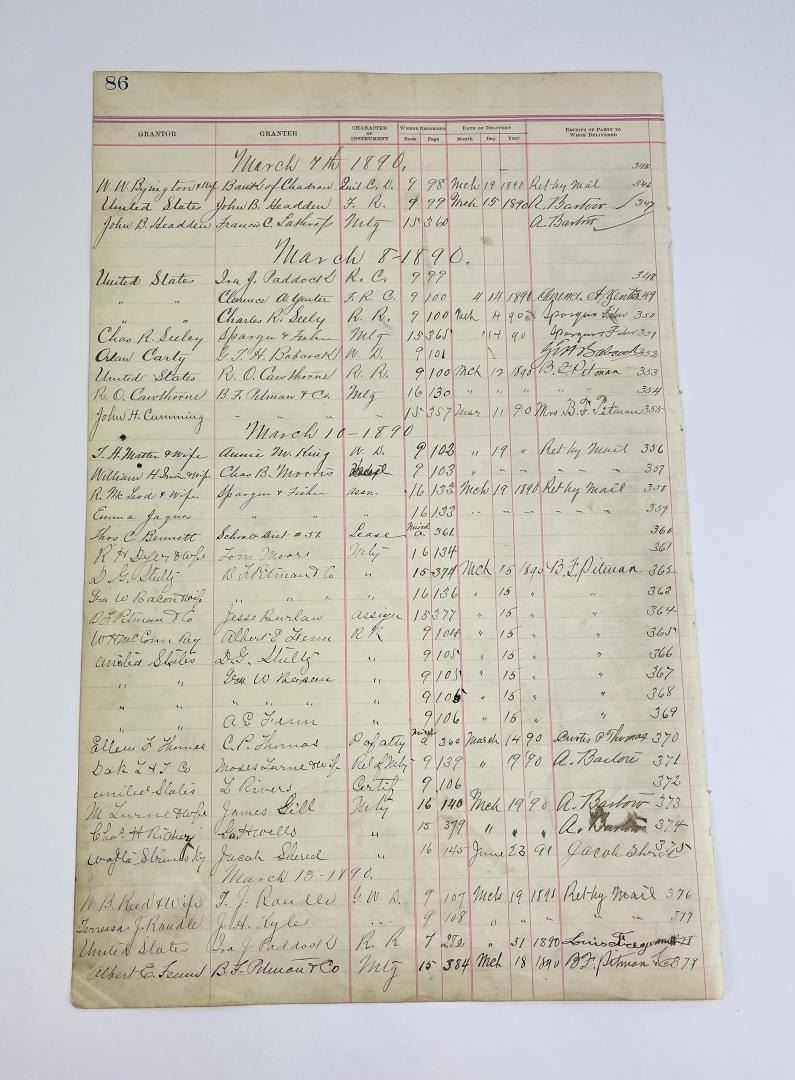 86
GRANTOR GRANTEE CHARACTER OF INSTRUMENT WHERE RECORDED Book Page DATE OF DELIVERY Month Day Year RECEIPT OF PARTY TO WHOM DELIVERED
March 7th 1890. 345
W. W. Byington & Wf Bank of Chadron Quit C. D. 9 98 Mch 19 1890 Ret by Mail 346
United States John B. Headden F. R. 9 99 Mch 15 1890 A. Barlow 347
John B. Headden Francis C. Lathrop Mtg 15 360 A. Barlow
March 8-1890.
United States Ira J. Paddock R. C. 9 99 348
" " Clarence A. Yenter F. R. C. 9 100 4 14 1890 Clarence A Yenter 349
" " Charles R. Seely R. R. 9 100 Mch 14 90 Spargur Fisher 350
Chas R. Seeley Spargur & Fisher Mtg 15 365 " 14 90 Spargur & Fisher 351
Carty G. T. H. Babcock W. D. 9 101 Babcock 352
United States R. O. Cawthorne R. R. 9 100 Mch 12 1890 B. F. Pitman 353
R. O. Cawthorne B. F. Pitman & Co. Mtg 16 130 " " " " " 354
John H. Cumming " " " " 15 357 Mar 11 90 Mrs. B. F. Pitman 355
March 10-1890
T. H. Matter & Wife Annie M. King W. D. 9 102 " 19 " Ret by Mail 356
William H. Irwin & Wife Chas B. Morris 9 103 " " " " " " 357
R. McLeod & Wife Spargur & Fisher assn. 16 132 Mch 19 1890 Ret by Mail 358
Emma Jaynes " " " 16 133 " " " " " " 359
Thos C. Bennett School Dist # 51 Lease a 361 360
R H & Wife Tom Moore Mtg 16 134 361
D. G. Stultz B F Pitman & Co " 15 374 Mch 15 1890 B. F. Pitman 362
Ira W Bacon & Wife " " " " 16 136 " 15 " " 363
B F Pitman & Co Jesse Assign 15 377 " 15 " " 364
Albert E Fenn R R 9 104 " 15 " " 365
United States D. G. Stultz " 9 105 " 15 " " 366
" " W " 9 105 " 15 " " 367
" " " " " " 9 106 " 15 " " 368
" " A E Fenn " 9 106 " 15 " " 369
Ellen F Thomas C. P. Thomas P of atty a 360 March 14 90 Curtis P Thomas 370
Dak L & T Co Moses Turne & Wife Rel of Mtg 9 139 " 19 90 A. Barlow 371
United States L Rivers Certif 9 106 372
M Turne & Wife James Gill Mtg 16 140 Mch 19 '90 A. Barlow 373
Chas. H Richey Wells " 15 379 " " " A. Barlow 374
Stransky Jacob " 16 145 June 23 91 Jacob 375
March 13-1890.
W. B. Reed & Wife T. J. Raudle G. W. D. 9 107 Mch 19 1890 Ret by Mail 376
Terressa J. Raudle J. H. Kyle " " 9 108 " " " " " " 377
United States Ira J Paddock R. R 7 " 31 1890 Louis
Albert E. Fenn B. F. Pitman & Co Mtg 15 384 Mch 18 1890 B. F. Pitman & Co 379